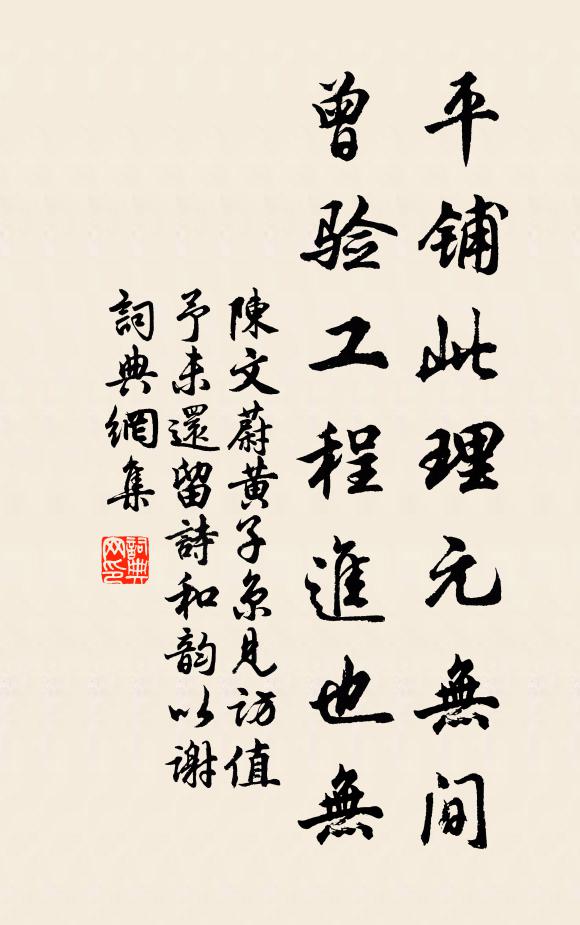 平铺此理元無间
曾验工程進也無
陳文蔚黄子京見訪值
予未還留詩和韵以謝
詞典網集
詞典网印